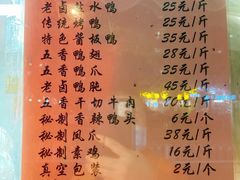 老卤盐水鸭 25元/斤
传统烤鸭 25元/斤
特色酱板鸭 35元/斤
五香鸭翅 28元/斤
五香鸭爪 35元/斤
老卤鸭肫 95元/斤
五香干切牛肉 元/斤
秘制香辣鸭头 6元/个
秘制凤爪 38元/斤
秘制素鸡 16元/斤
真空包装 2元/